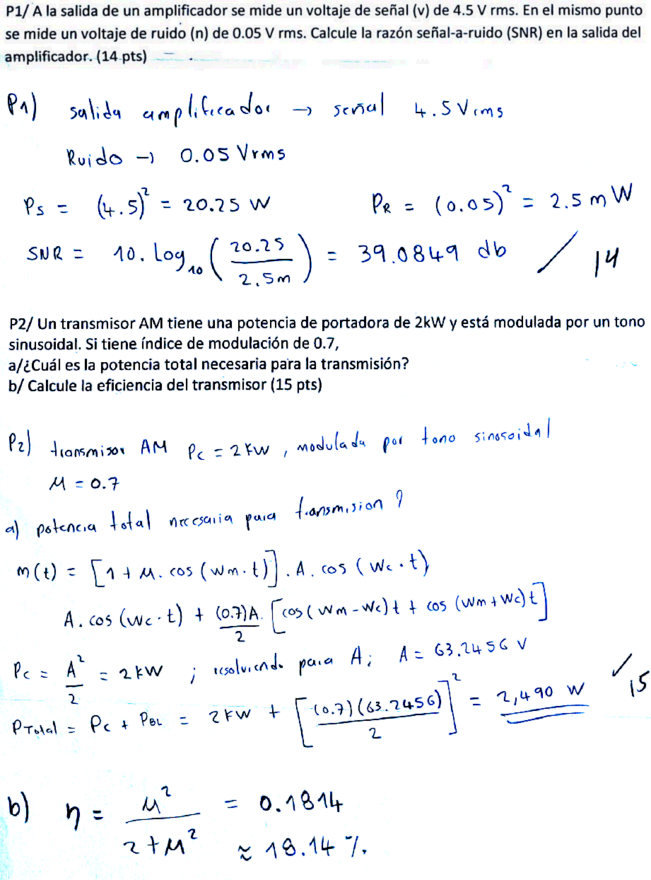 P1/ A la salida de un amplificador se mide un voltaje de señal (v) de 4.5 V rms. En el mismo punto
se mide un voltaje de ruido (n) de 0.05 V rms. Calcule la razón señal-a-ruido (SNR) en la salida del
amplificador. (14 pts)
P1) salida amplificador → señal 4.5 Vrms
Ruido → 0.05 Vrms
Ps = (4.5)² = 20.25 W PR = (0.05)² = 2.5 mW
SNR = 10. Log₁₀ (20.25 / 2.5m) = 39.0849 db / 14
P2/ Un transmisor AM tiene una potencia de portadora de 2kW y está modulada por un tono
sinusoidal. Si tiene índice de modulación de 0.7,
a/¿Cuál es la potencia total necesaria para la transmisión?
b/ Calcule la eficiencia del transmisor (15 pts)
P2) transmisor AM Pc = 2kW, modulada por tono sinosoidal
M = 0.7
a) potencia total necesaria para transmision ?
m(t) = [1 + M. cos (wm.t)]. A. cos (wc.t)
A. cos (wc.t) + (0.7)A./2 [cos(wm-wc)t + cos (wm+wc)t]
Pc = A²/2 = 2kW ; resolviendo para A; A = 63.2456 V
PTotal = Pc + PBL = 2kW + [(0.7)(63.2456)/2]² = 2,490 W ✓ 15
b) η = M² / 2+M² = 0.1814
≈ 18.14 %.